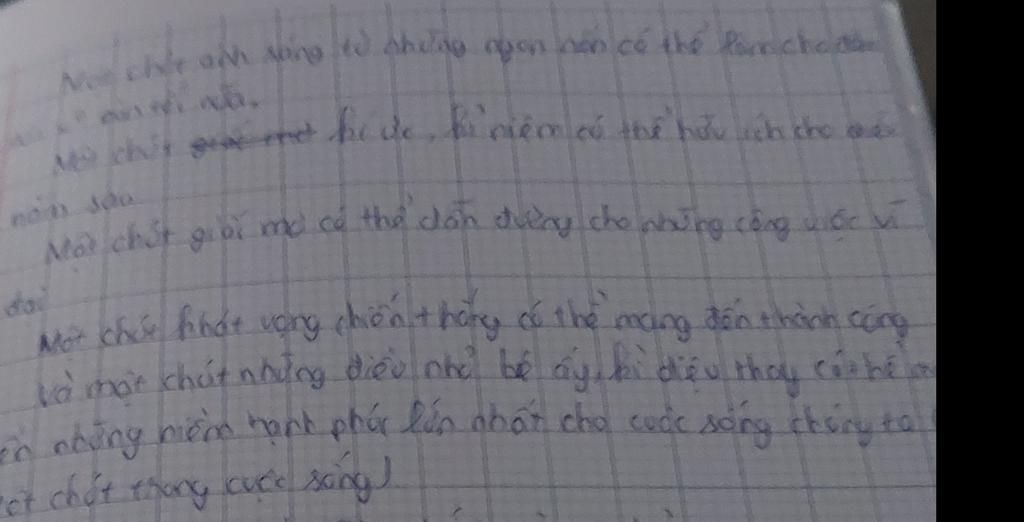 Một chút ánh sáng từ những ngọn nến có thể làm cho
nữa.
Một chút kí ức, kỉ niệm có thể hữu ích cho
năm sau
Một chút giấc mơ có thể dẫn đường cho những công việc vĩ
đại
Một chút khát vọng chiến thắng có thể mang đến thành công
Và một chút những điều nhỏ bé ấy, kì diệu thay có thể
những niềm hạnh phúc lớn nhất cho cuộc sống chúng ta
chút trong cuộc sống)